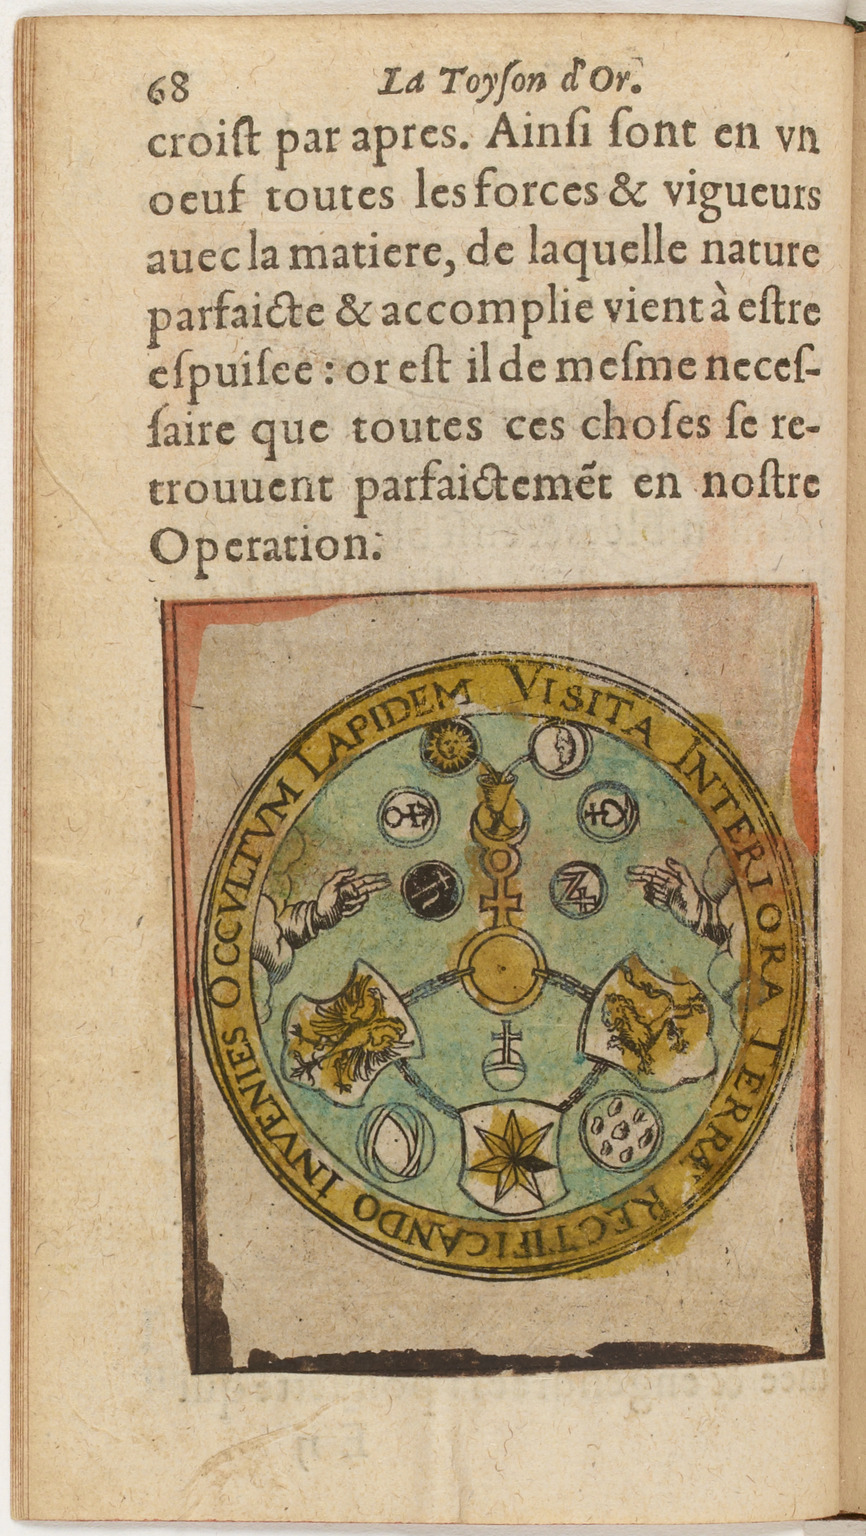 68 La Toyſon d'Or.
croiſt par apres. Ainſi ſont en vn
oeuf toutes les forces & vigueurs
auec la matiere, de laquelle nature
parfaicte & accomplie vient à eſtre
eſpuiſee : or eſt il de meſme neceſ-
ſaire que toutes ces choſes ſe re-
trouuent parfaictemẽt en noſtre
Operation.
VISITA INTERIORA TERRÆ RECTIFICANDO INVENIES OCCVLTVM LAPIDEM